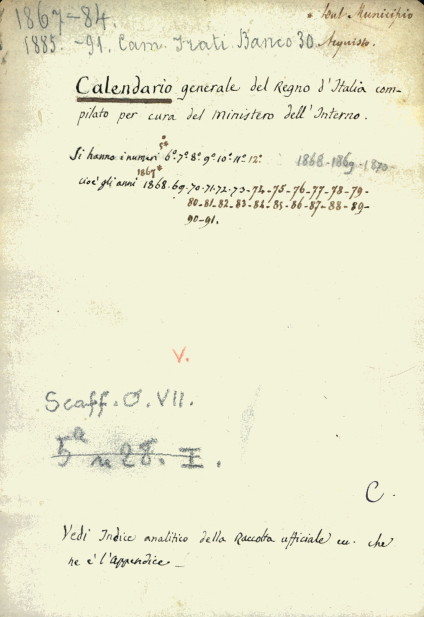 1867-84.
1885.-91. Cam. Frati. Banco 30
* Municipio
Acquisto.
Calendario generale del Regno d'Italia com-
pilato per cura del Ministero dell'Interno.
5º
Si hanno i numeri 6º 7º 8º 9º 10º 11º 12º
1868-1869-1870-
1867*
cioè gli anni 1868-69-70-71-72-73-74-75-76-77-78-79-
80-81-82-83-84-85-86-87-88-89-
90-91.
V.
Scaff. O. VII.
5ª n 28. I.
C.
Vedi Indice analitico della Raccolta ufficiale che
ne è l'Appendice_